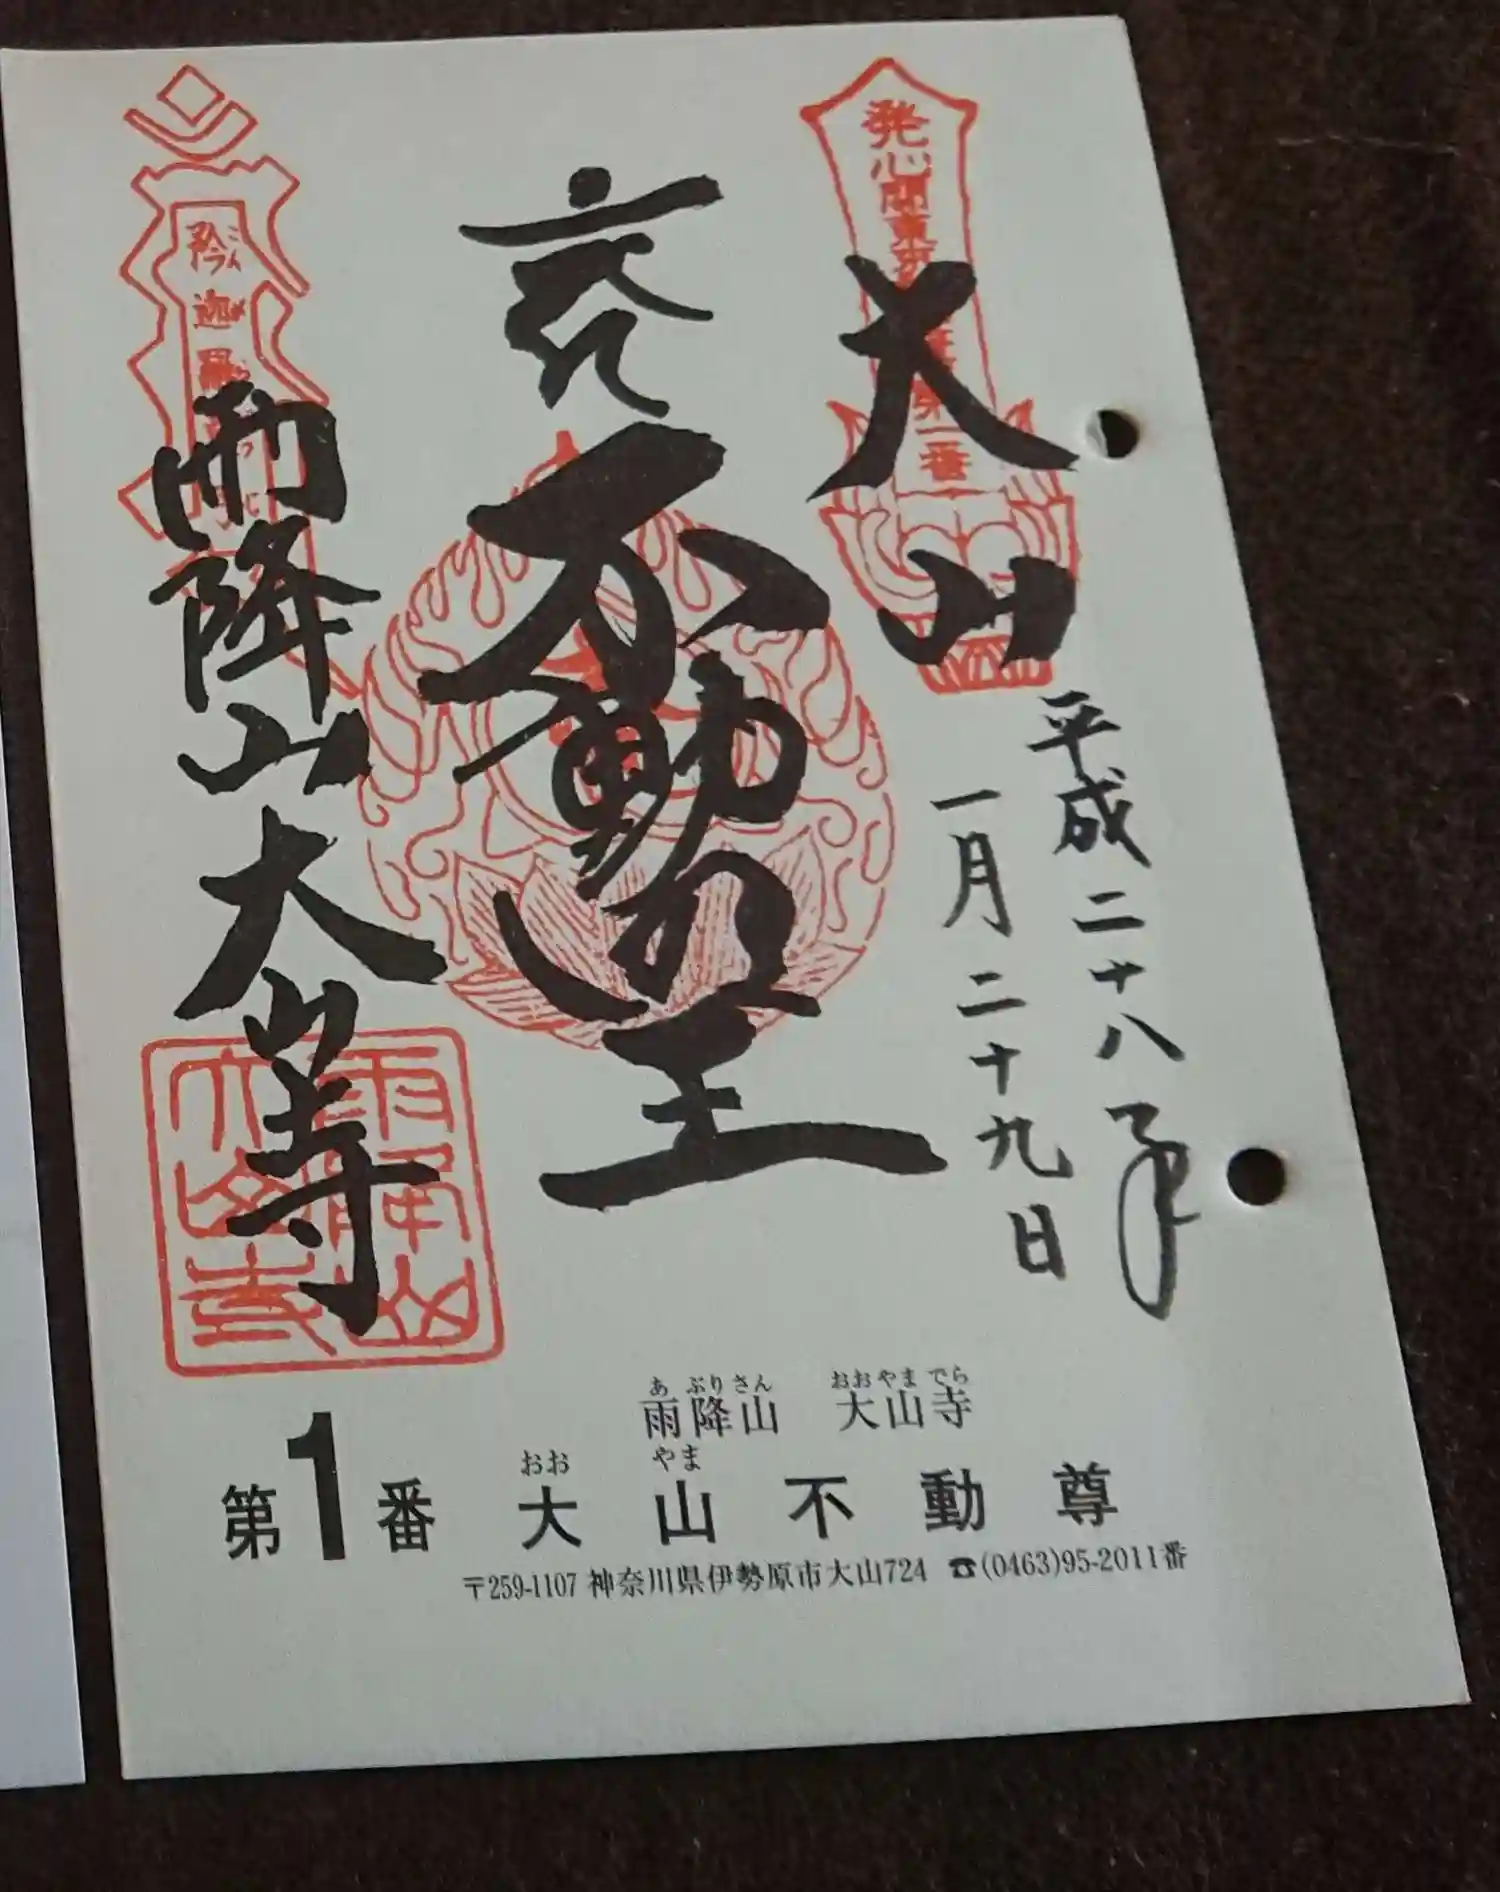 大山
平成二十八年
一月二十九日
不動明王
雨降山大山寺
発心関東
第一番
雨降山
大山寺
あ ぶり さん おおやまでら
雨降山 大山寺
おお やま
第1番 大山不動尊
〒259-1107 神奈川県伊勢原市大山724 ☎(0463)95-2011番